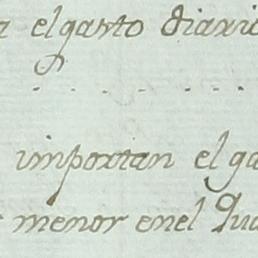 el gasto diario
importan el ga
menor en el Qua